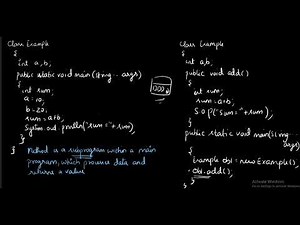 Class Example
{
int a,b;
public static void main(String... args)
{
int sum;
a=10;
b=20;
sum=a+b;
System.out.println("sum="+sum);
}
}
Method is a subprogram within a main
program, which process data and
returns a value
1000
Class Example
{
int a,b;
public void add()
{
int sum;
sum=a+b;
S.O.P("Sum="+sum);
}
public static void main(String
...args)
{
Example obj=new Example();
obj.add();
}
}
Activate Windows